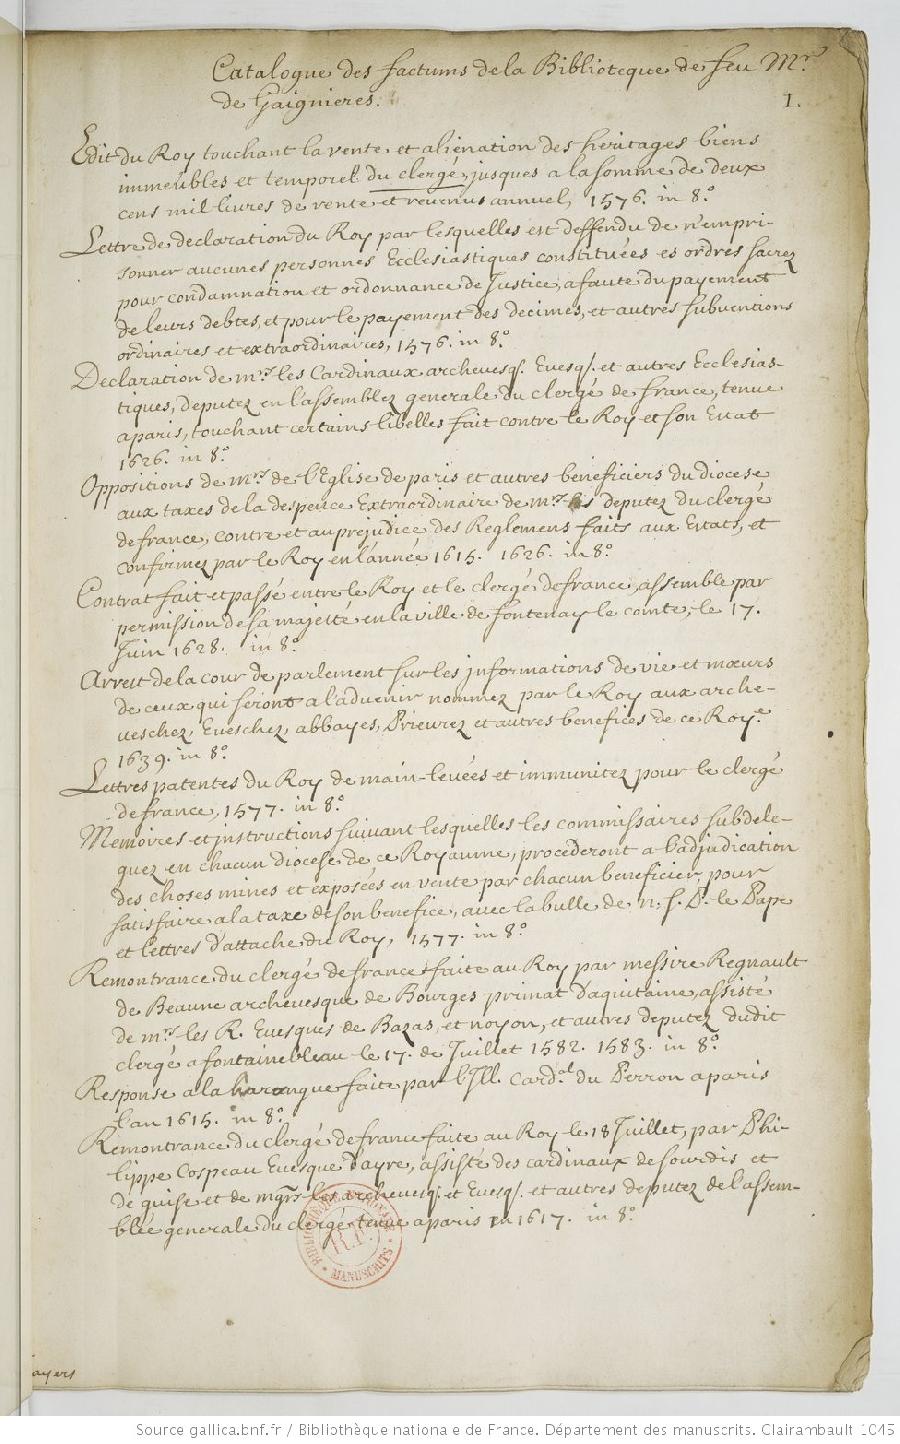 Catalogue des factums de la Biblioteque de feu Mr
de Gaignieres.
1.
Edit du Roy touchant la vente et aliénation des heritages biens
immeubles et temporel du clergé, jusques a la somme de deux
cens mil livres de rente et revenus annuel, 1576. in 8°
Lettre de declaration du Roy par lesquelles est deffendu de n'empri-
sonner aucunes personnes Ecclesiastiques constituées es ordres sacrez
pour condamnation et ordonnance de Justice, a faute du payement
de leurs debtes, et pour le payement des decimes, et autres subventions
ordinaires et extraordinaires, 1576. in 8°
Declaration de mrs les Cardinaux archevesq. Evesq. et autres Ecclesias-
tiques, deputez en l'assemblez generale du clergé de france, tenue
a paris, touchant certains libelles fait contre le Roy et son Estat
1626. in 8°
Oppositions de mrs de l'Eglise de paris et autres beneficiers du diocese
aux taxes de la despence Extraordinaire de mrs les deputez du clergé
de france, contre et au prejudice des Reglemens faits aux Estats, et
confirmez par le Roy en l'année 1615. 1626. in 8°
Contrat fait et passé entre le Roy et le clergé de france, assemblé par
permission de sa majesté en la ville de fontenay le comte, le 17.
Juin 1628. in 8°
Arrest de la cour de parlement sur les informations de vie et mœurs
de ceux qui seront a l'advenir nommez par le Roy aux arche-
veschez, Eveschez, abbayes, Prieurez et autres benefices de ce Roye
1639. in 8°
Lettres patentes du Roy de main-levées et immunitez pour le clergé
de france, 1577. in 8°
Memoires et instructions suivant lesquelles les commissaires subdele-
guez en chacun diocese de ce Royaume, procederont a l'adjudication
des choses mines et exposées en vente par chacun beneficier, pour
satisfaire a la taxe de son benefice, avec la bulle de n. s. P. le Pape
et lettres d'attache du Roy, 1577. in 8°
Remontrance du clergé de france faite au Roy par messire Regnault
de Beaune archevesque de Bourges primat d'aquitaine, assisté
de mrs les R. Evesques de Bazas, et noyon, et autres deputez dudit
clergé a fontainebleau le 17. de Juillet 1582. 1583. in 8°
Response a la harangue faite par l'Ill. Cardal du Perron a paris
l'an 1615. in 8°
Remontrance du clergé de france faite au Roy le 18 Juillet, par Phi-
lippe Cospeau Evesque d'ayre, assisté des cardinaux de sourdis et
de guise et de mgrs les archevesq. et Evesq. et autres deputez de l'assem-
blée generale du clergé tenue a paris en 1617. in 8°
BIBLIOTHEQUE
MANUSCRITS
ayers
Source gallica.bnf.fr / Bibliothèque nationale de France. Département des manuscrits. Clairambault 1045